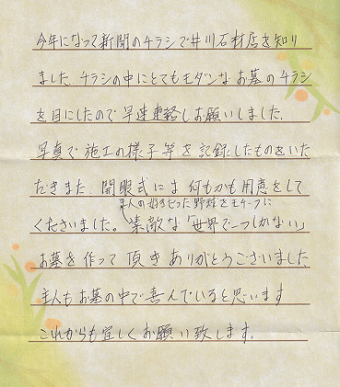 今年になって新聞のチラシで井川石材店を知り
ました チラシの中にとてもモダンなお墓のチラシ
を目にしたので早速連絡しお願いしました。
写真で施工の様子等を記録したものをいた
だきまた 開眼式にま何もかも用意をして
主人の好きだった野球をモチーフに
くださいました。素敵な「世界で一つしかない」
お墓を作って頂きありがとうございました
主人もお墓の中で喜んでいると思います
これからも宜しくお願い致します。